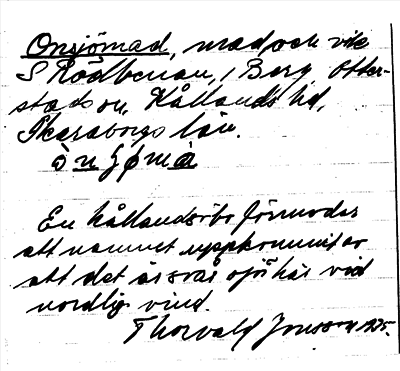 Onsjömad, mad och vik
S Rödbenan, i Berg, Otter-
stads sn, Kållands hd,
Skaraborgs län.
En kållandsibo förmodar
att namnet uppkommit av
att det är svår sjö här vid
nordlig vind.
Thorvald Jonsson 1925.